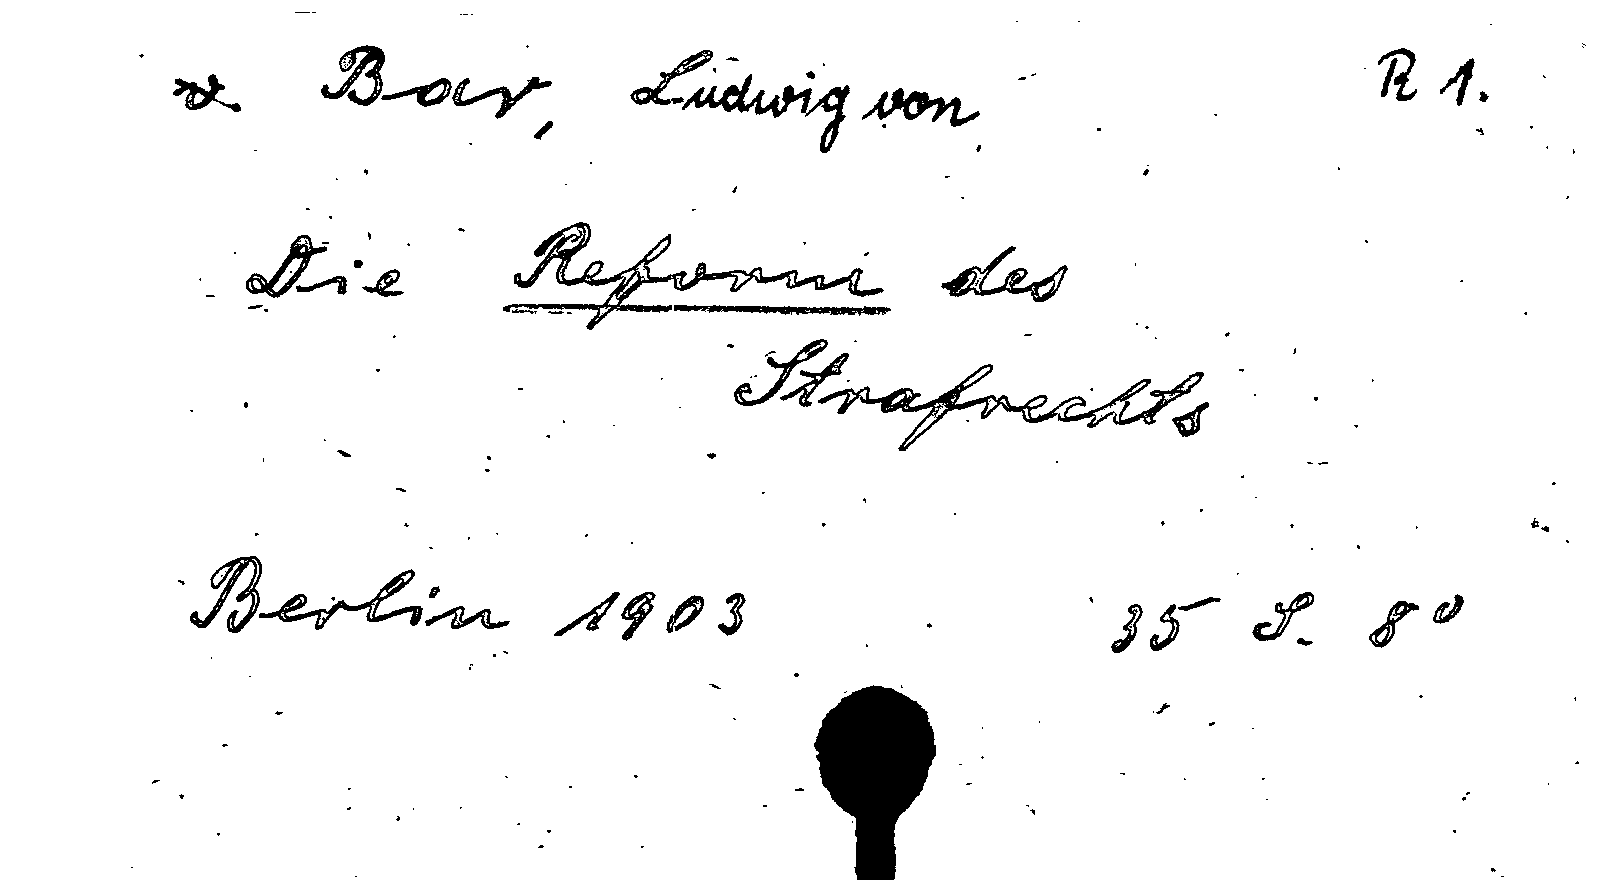 v. Bar, Ludwig von R 1.
Die Reform des
Strafrechts
Berlin 1903 35 S. 8°